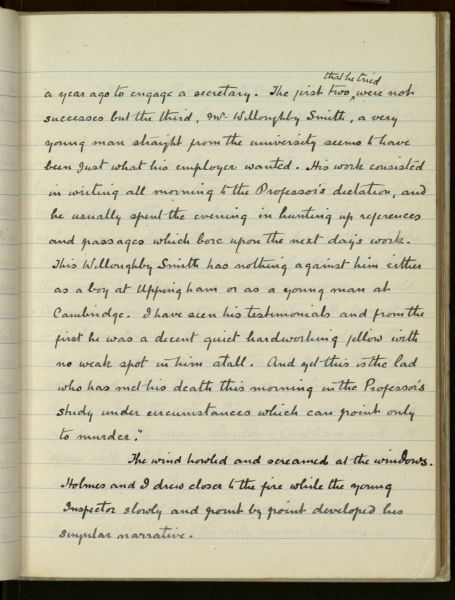 that he tried
a year ago to engage a secretary. The first two, were not
successes but the third, Mr Willoughby Smith, a very
young man straight from the university seems to have
been just what his employer wanted. His work consisted
in writing all morning to the Professor's dictation, and
he usually spent the evening in hunting up references
and passages which bore upon the next day's work.
This Willoughby Smith has nothing against him either
as a boy at Uppingham or as a young man at
Cambridge. I have seen his testimonials and from the
first he was a decent quiet hardworking fellow with
no weak spot in him at all. And yet this is the lad
who has met his death this morning in the Professor's
study under circumstances which can point only
to murder."
The wind howled and screamed at the windows.
Holmes and I drew closer to the fire while the young
Inspector slowly and point by point developed his
singular narrative.